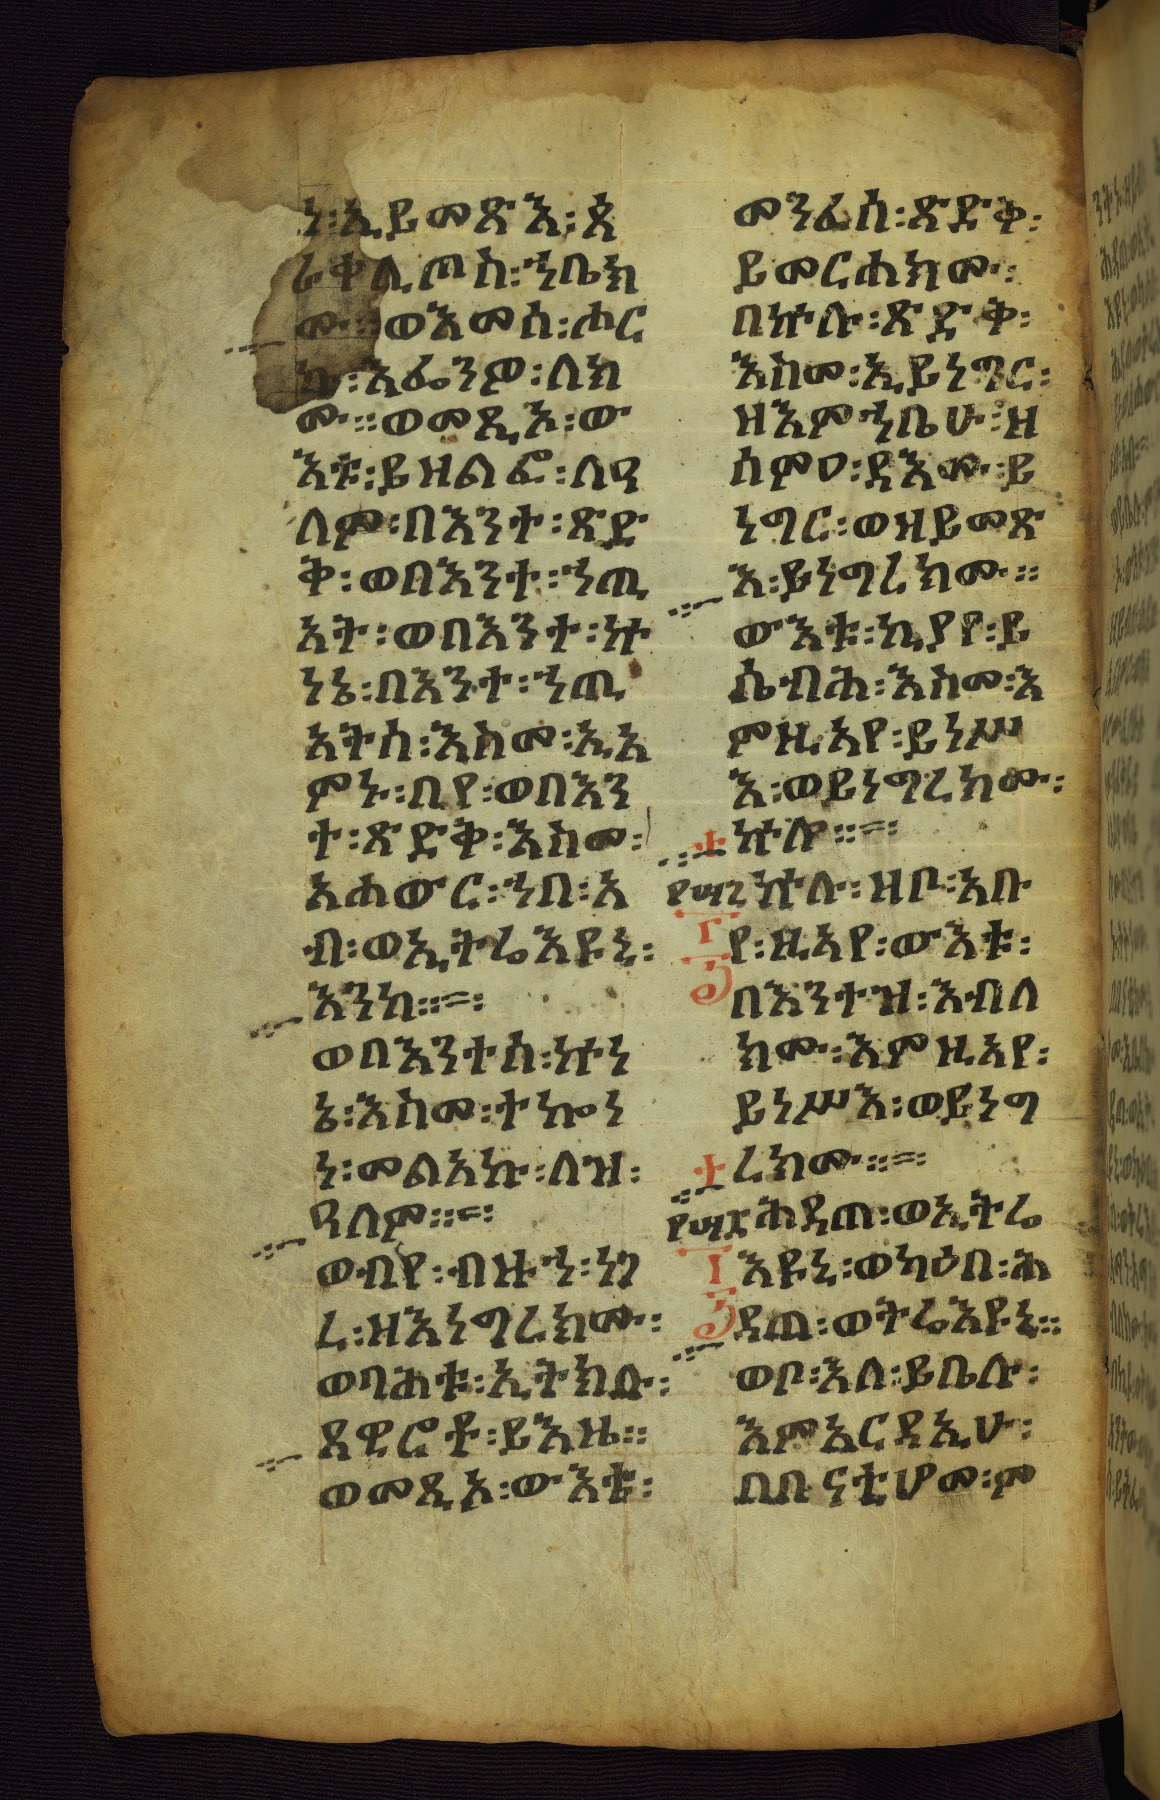 ነ፡ኢይመጽእ፡ጰ
ራቀሊጦስ፡ኀቤክ
ሙ፡፡ወእመሰ፡ሖር
ኩ፡እፌንዎ፡ለክ
ሙ፡፡ወመጺኦ፡ው
እቱ፡ይዘልፎ፡ለዓ
ለም፡በእንተ፡ጽድ
ቅ፡ወበእንተ፡ኀጢ
አት፡ወበእንተ፡ኵ
ነኔ፡በእንተ፡ኀጢ
አትሰ፡እስመ፡ኢአ
ምኑ፡ብየ፡ወበእን
ተ፡ጽድቅ፡እስመ፡
አሐውር፡ኀበ፡አ
ብ፡ወኢትሬእዩኒ፡
እንከ፡፡=፡
ወበእንተሰ፡ኵነ
ኔ፡እስመ፡ተኰነ
ነ፡መልአኩ፡ለዝ፡
ዓለም፡፡=፡
ወብየ፡ብዙኀ፡ነገ
ረ፡ዘእነግረክሙ፡
ወባሕቱ፡ኢትክሉ፡
ጸዊሮቶ፡ይእዜ፡፡
ወመጺኦ፡ውእቱ፡
መንፈሰ፡ጽድቅ፡
ይመርሐክሙ፡
በኵሉ፡ጽድቅ፡
እስመ፡ኢይነግር፡
ዘእምኀቤሁ፡ዘ
ሰምዐ፡ዳእሙ፡ይ
ነግር፡ወዘይመጽ
እ፡ይነግረክሙ፡፡
ውእቱ፡ኪያየ፡ይ
ሴብሕ፡እስመ፡እ
ምዚአየ፡ይነሥ
እ፡ወይነግረክሙ፡
ኵሎ፡፡=፡
ኵሉ፡ዘቦ፡አቡ
የ፡ዚአየ፡ውእቱ፡
በእንተዝ፡እብለ
ክሙ፡እምዚአየ፡
ይነሥእ፡ወይነግ
ረክሙ፡፡=፡
ሕዳጠ፡ወኢትሬ
እዩኒ፡ወካዕበ፡ሕ
ዳጠ፡ወትሬእዩኒ፡፡
ወቦ፡እለ፡ይቤሉ፡
እምአርዳኢሁ፡
በበናቲሆመ፡ም